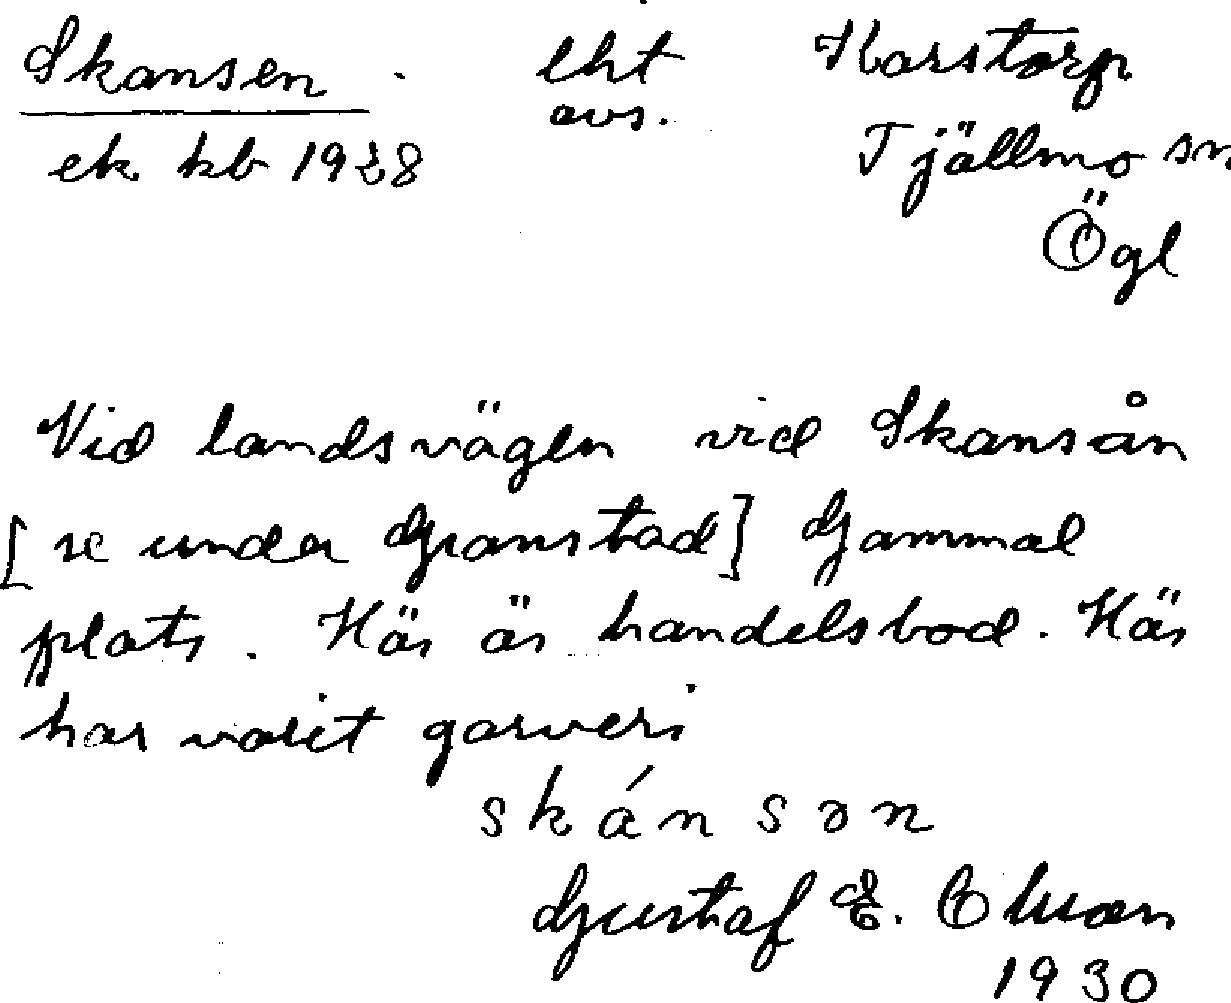 Skansen . lht Harstorp
avs.
ek kb 1928 Tjällmo sn
Ögl
Vid landsvägen vid Skansån
[se under Granstad] Gammal
plats. Här är handelsbod. Här
har varit garveri
skánsən
Gustaf E.
1930